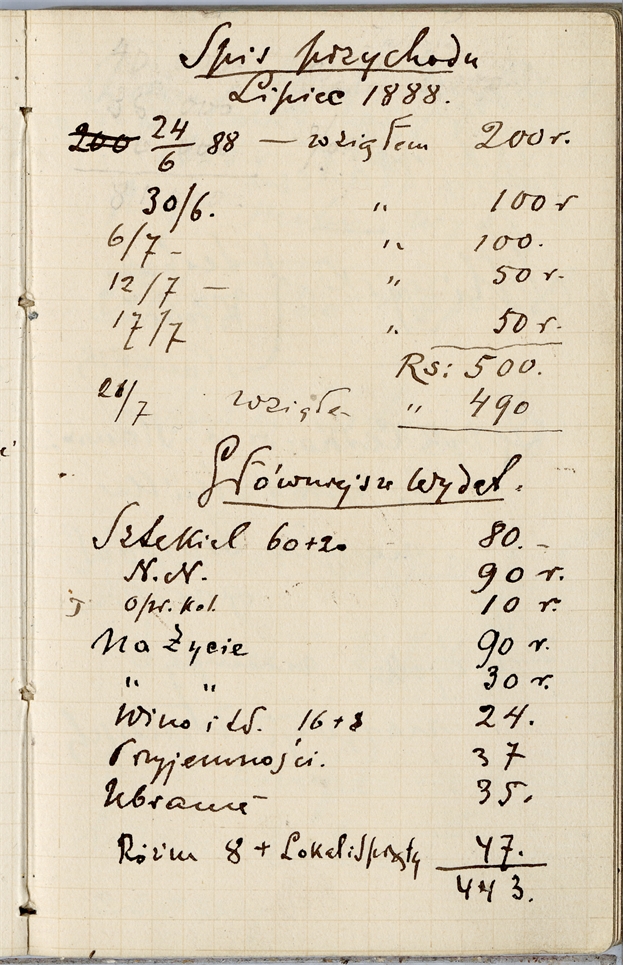 Spis przychodu
Lipiec 1888.
200 24/6 88 — wziąłem 200 r.
30/6. " 100 r
6/7 - " 100.
12/7 — " 50 r.
17/7 " 50 r.
Rs: 500.
21/7 wziąłe " 490
Główniejsze wydat.
Sztekiel 60+20 80.-
N.N. 90 r.
opr. kol. 10 r.
Na Życie 90 r.
" " 30 r.
Wino i 16+8 24.
Przyjemności. 37
Ubranie 35.
8 + Lokal i Sprzęty 47.
443.